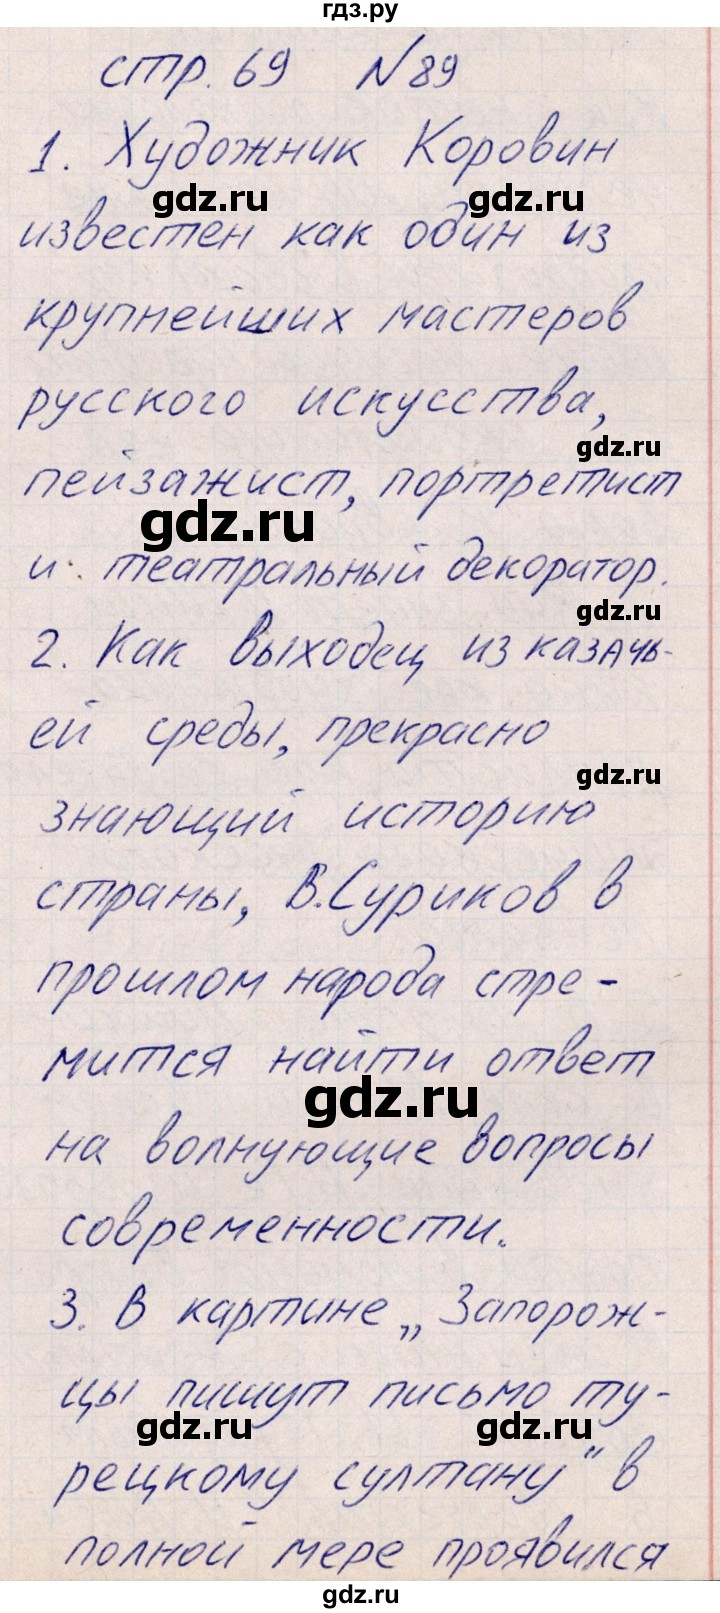 гдз.ру
стр. 69 №89
1. Художник Коровин
gdz.ru gdz.ru
известен как один из
крупнейших мастеров
русского искусства,
gdz.ru
пейзажист, портретист
gdz.ru
и театральный декоратор.
gdz.ru
2. Как выходец из казачь-
ей среды, прекрасно
gdz.ru
знающий историю
страны, В.Суриков в
прошлом народа стре-
мится найти ответ
gdz.ru
на волнующие вопросы
современности.
3. В картине „Запорож-
цы пишут письмо ту-
gdz.ru gdz.ru
рецкому султану" в
полной мере проявился
gdz.ru